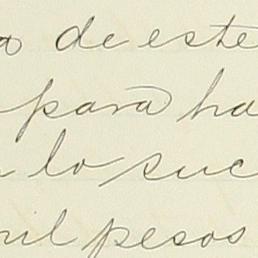 de este
para ha
lo suc
mil pesos